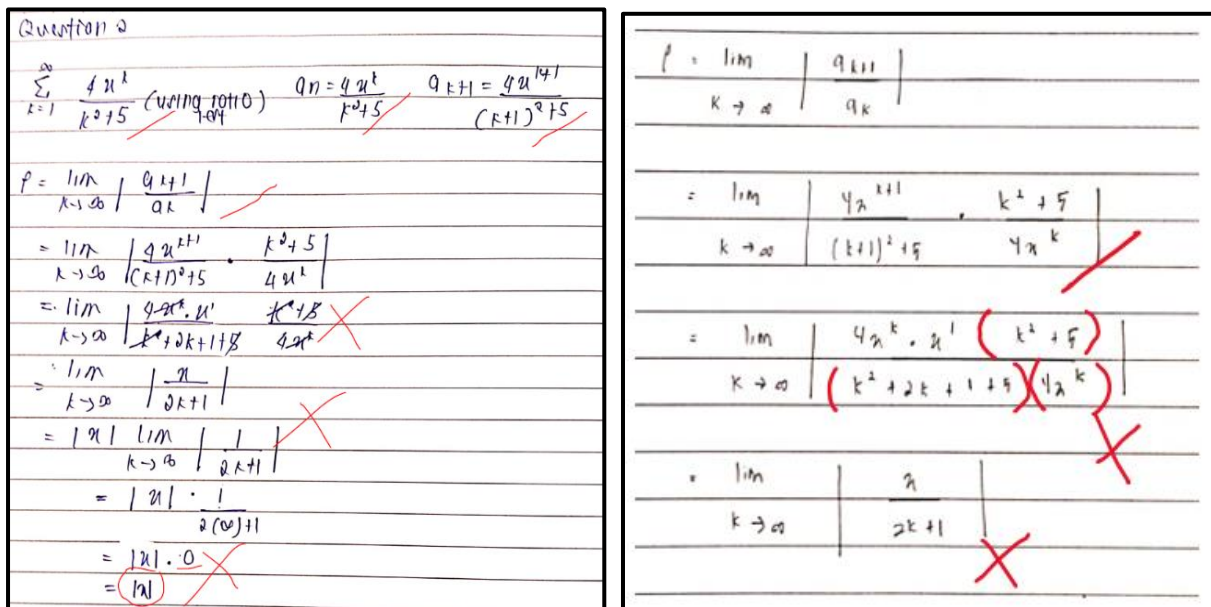 Question 2
∞ ∑ k=1 4x^k / k²+5 (using ratio test) an = 4x^k / k²+5 a k+1 = 4x^k+1 / (k+1)²+5
ρ = lim k→∞ | a k+1 / a k |
= lim k→∞ | 4x^k+1 / (k+1)²+5 · k²+5 / 4x^k |
= lim k→∞ | 4x^k · x¹ / k²+2k+1+5 k²+5 / 4x^k |
= lim k→∞ | x / 2k+1 |
= |x| lim k→∞ | 1 / 2k+1 |
= |x| · 1 / 2(∞)+1
= |x| · 0
= |x|
ρ = lim k→∞ | a k+1 / a k |
= lim k→∞ | 4x^k+1 / (k+1)²+5 · k²+5 / 4x^k |
= lim k→∞ | 4x^k · x¹ (k²+5) / (k²+2k+1+5)(4x^k) |
= lim k→∞ | x / 2k+1 |